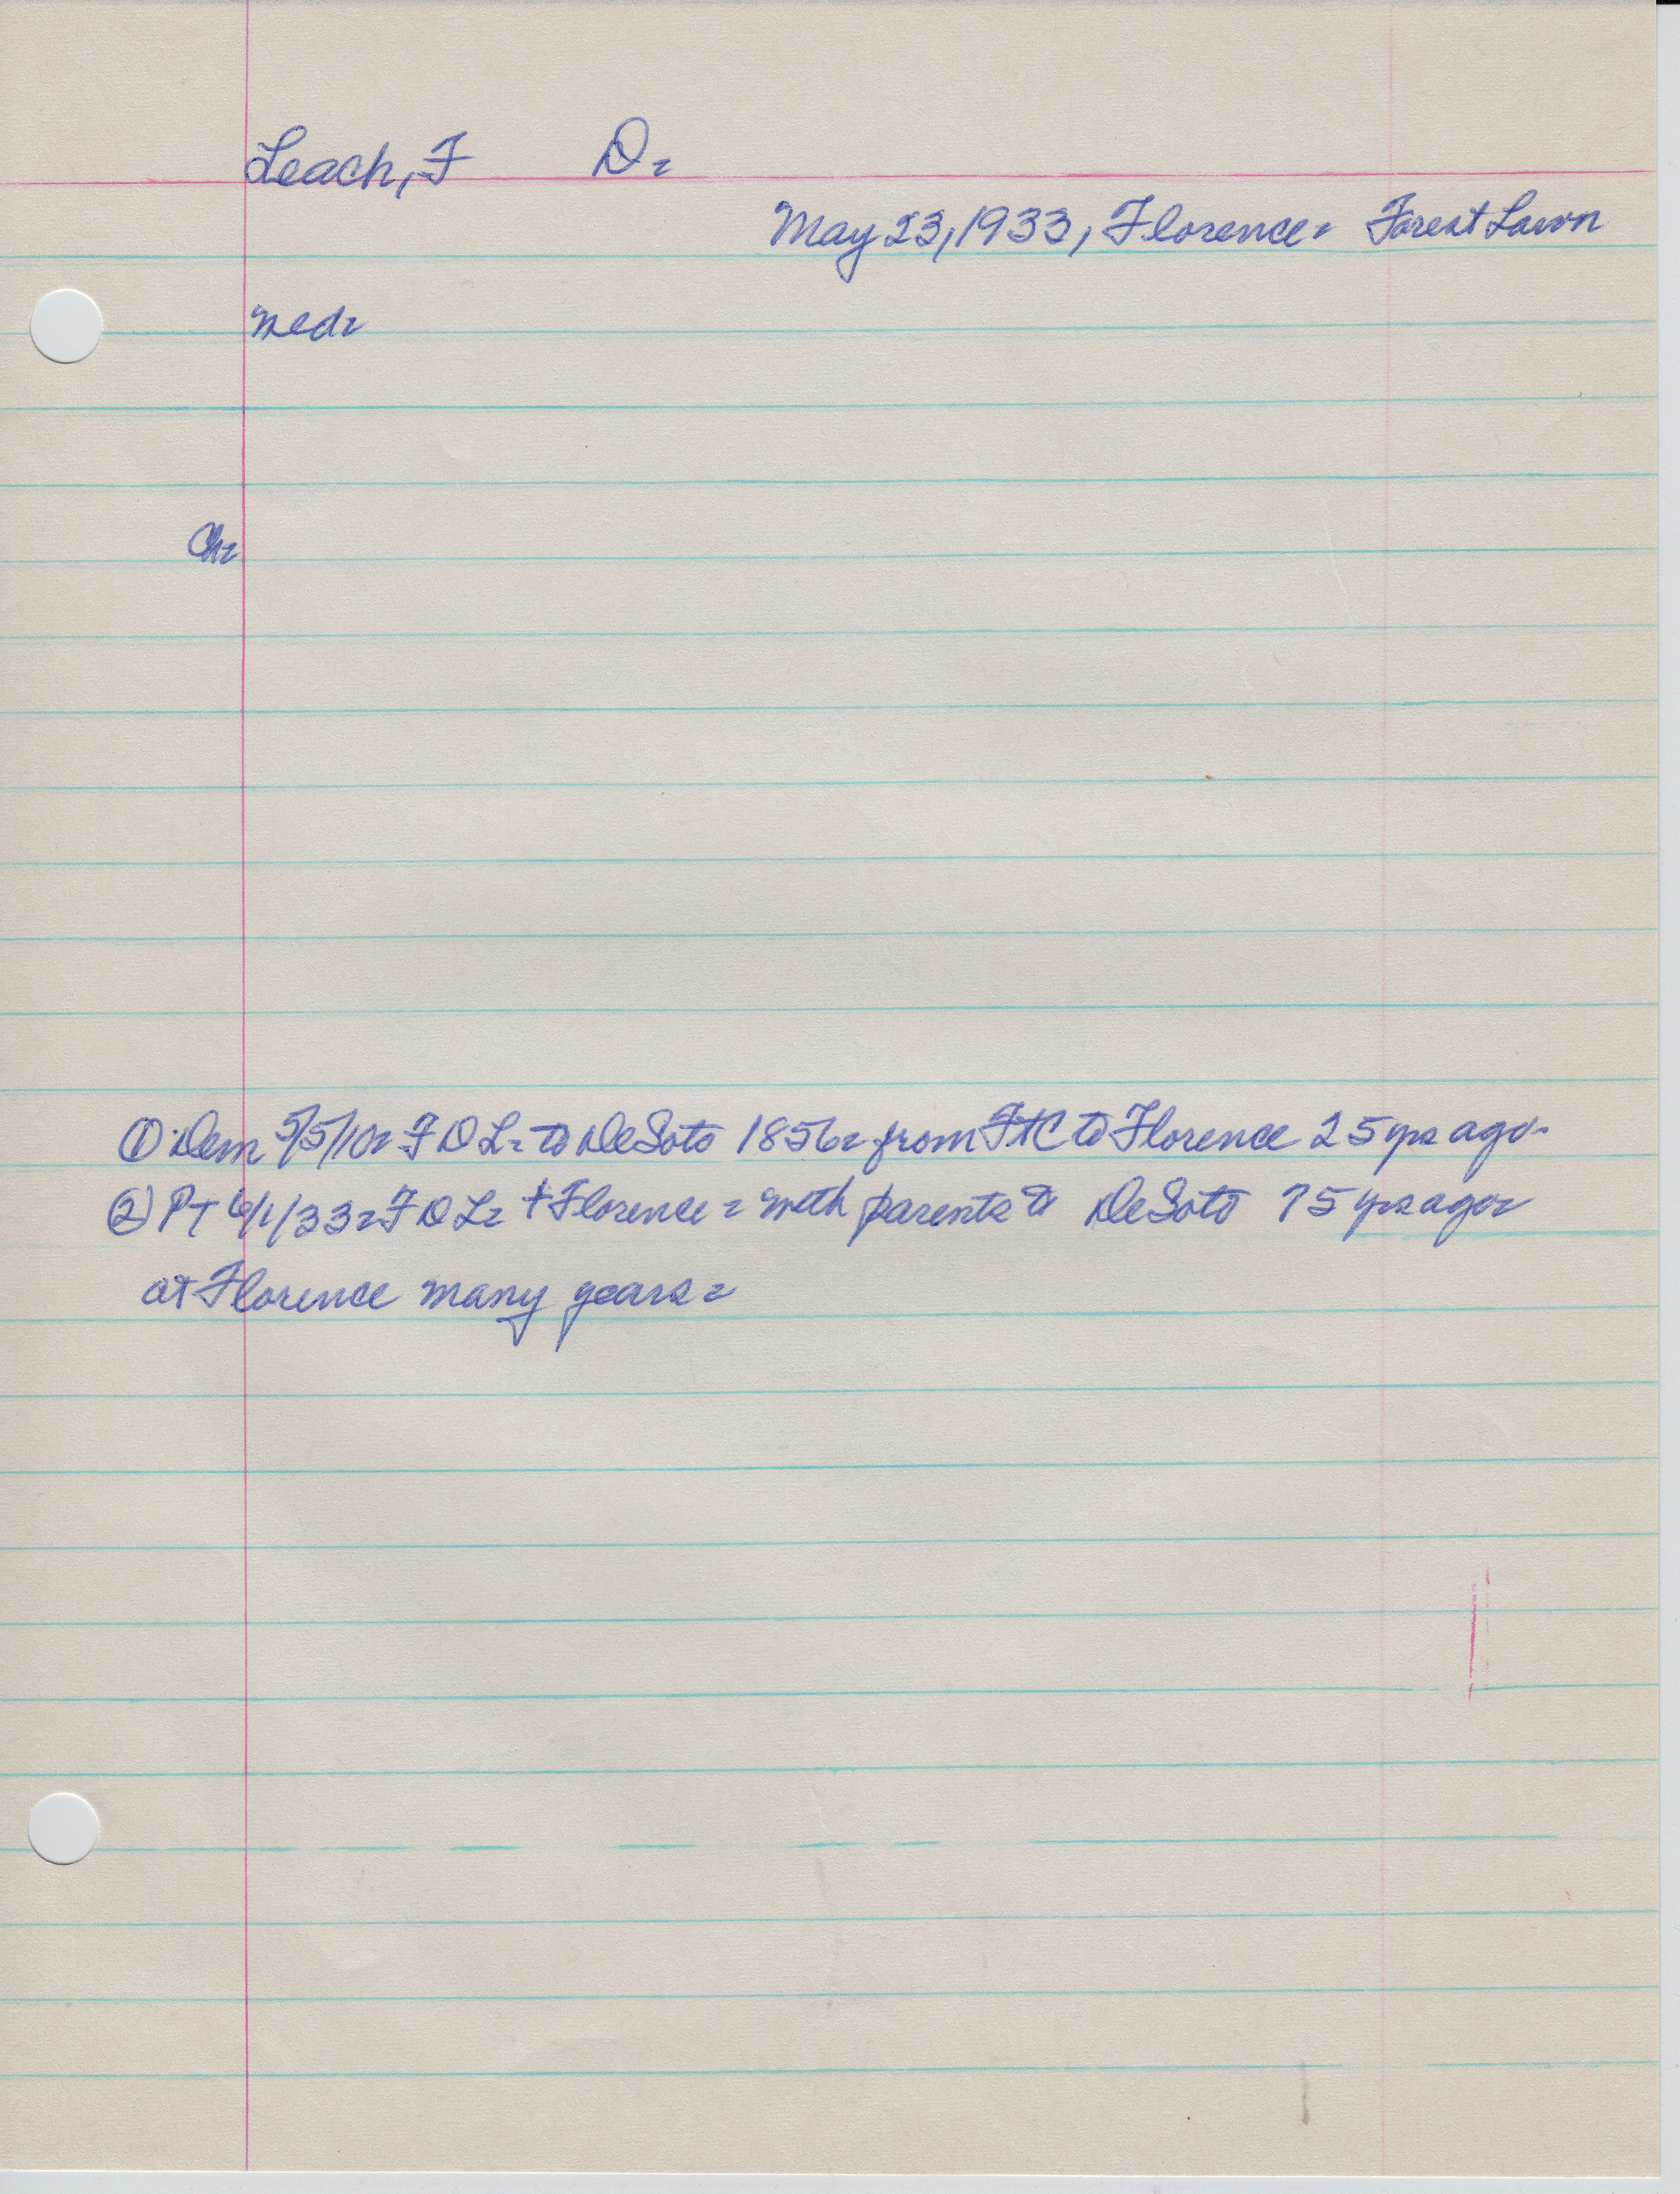 Leach, F D.
May 23, 1933, Florence. Forest Lawn
med.
Ch.
① Dem 5/5/10. F D L. to DeSoto 1856. from FtC to Florence 25 yrs ago.
② PT 6/1/33. F D L. + Florence. with parents to DeSoto 75 yrs ago.
at Florence many years.